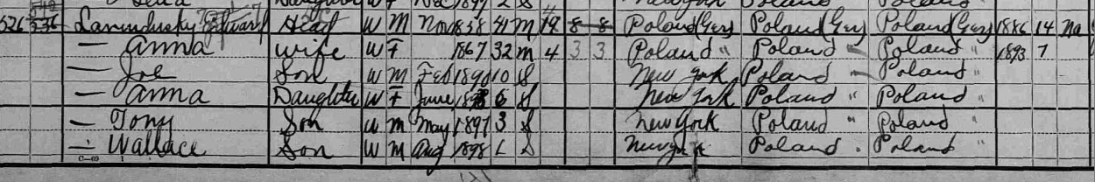 Daughter W F Dec 1897 2 S New York Poland Poland
526 Lavindusky Edward Head W M Nov 1858 41 M 14 8 8 Poland Ger Poland Ger Poland Ger 1886 14 Na
— Anna Wife W F 1867 32 M 4 3 3 Poland " Poland " Poland " 1893 7
— Joe Son W M Feb 1890 10 S New York Poland " Poland "
— Anna Daughter W F June 6 S New York Poland " Poland "
— Tony Son W M May 1897 3 S New York Poland " Poland "
— Wallace Son W M Aug 1898 1 S New York Poland " Poland "